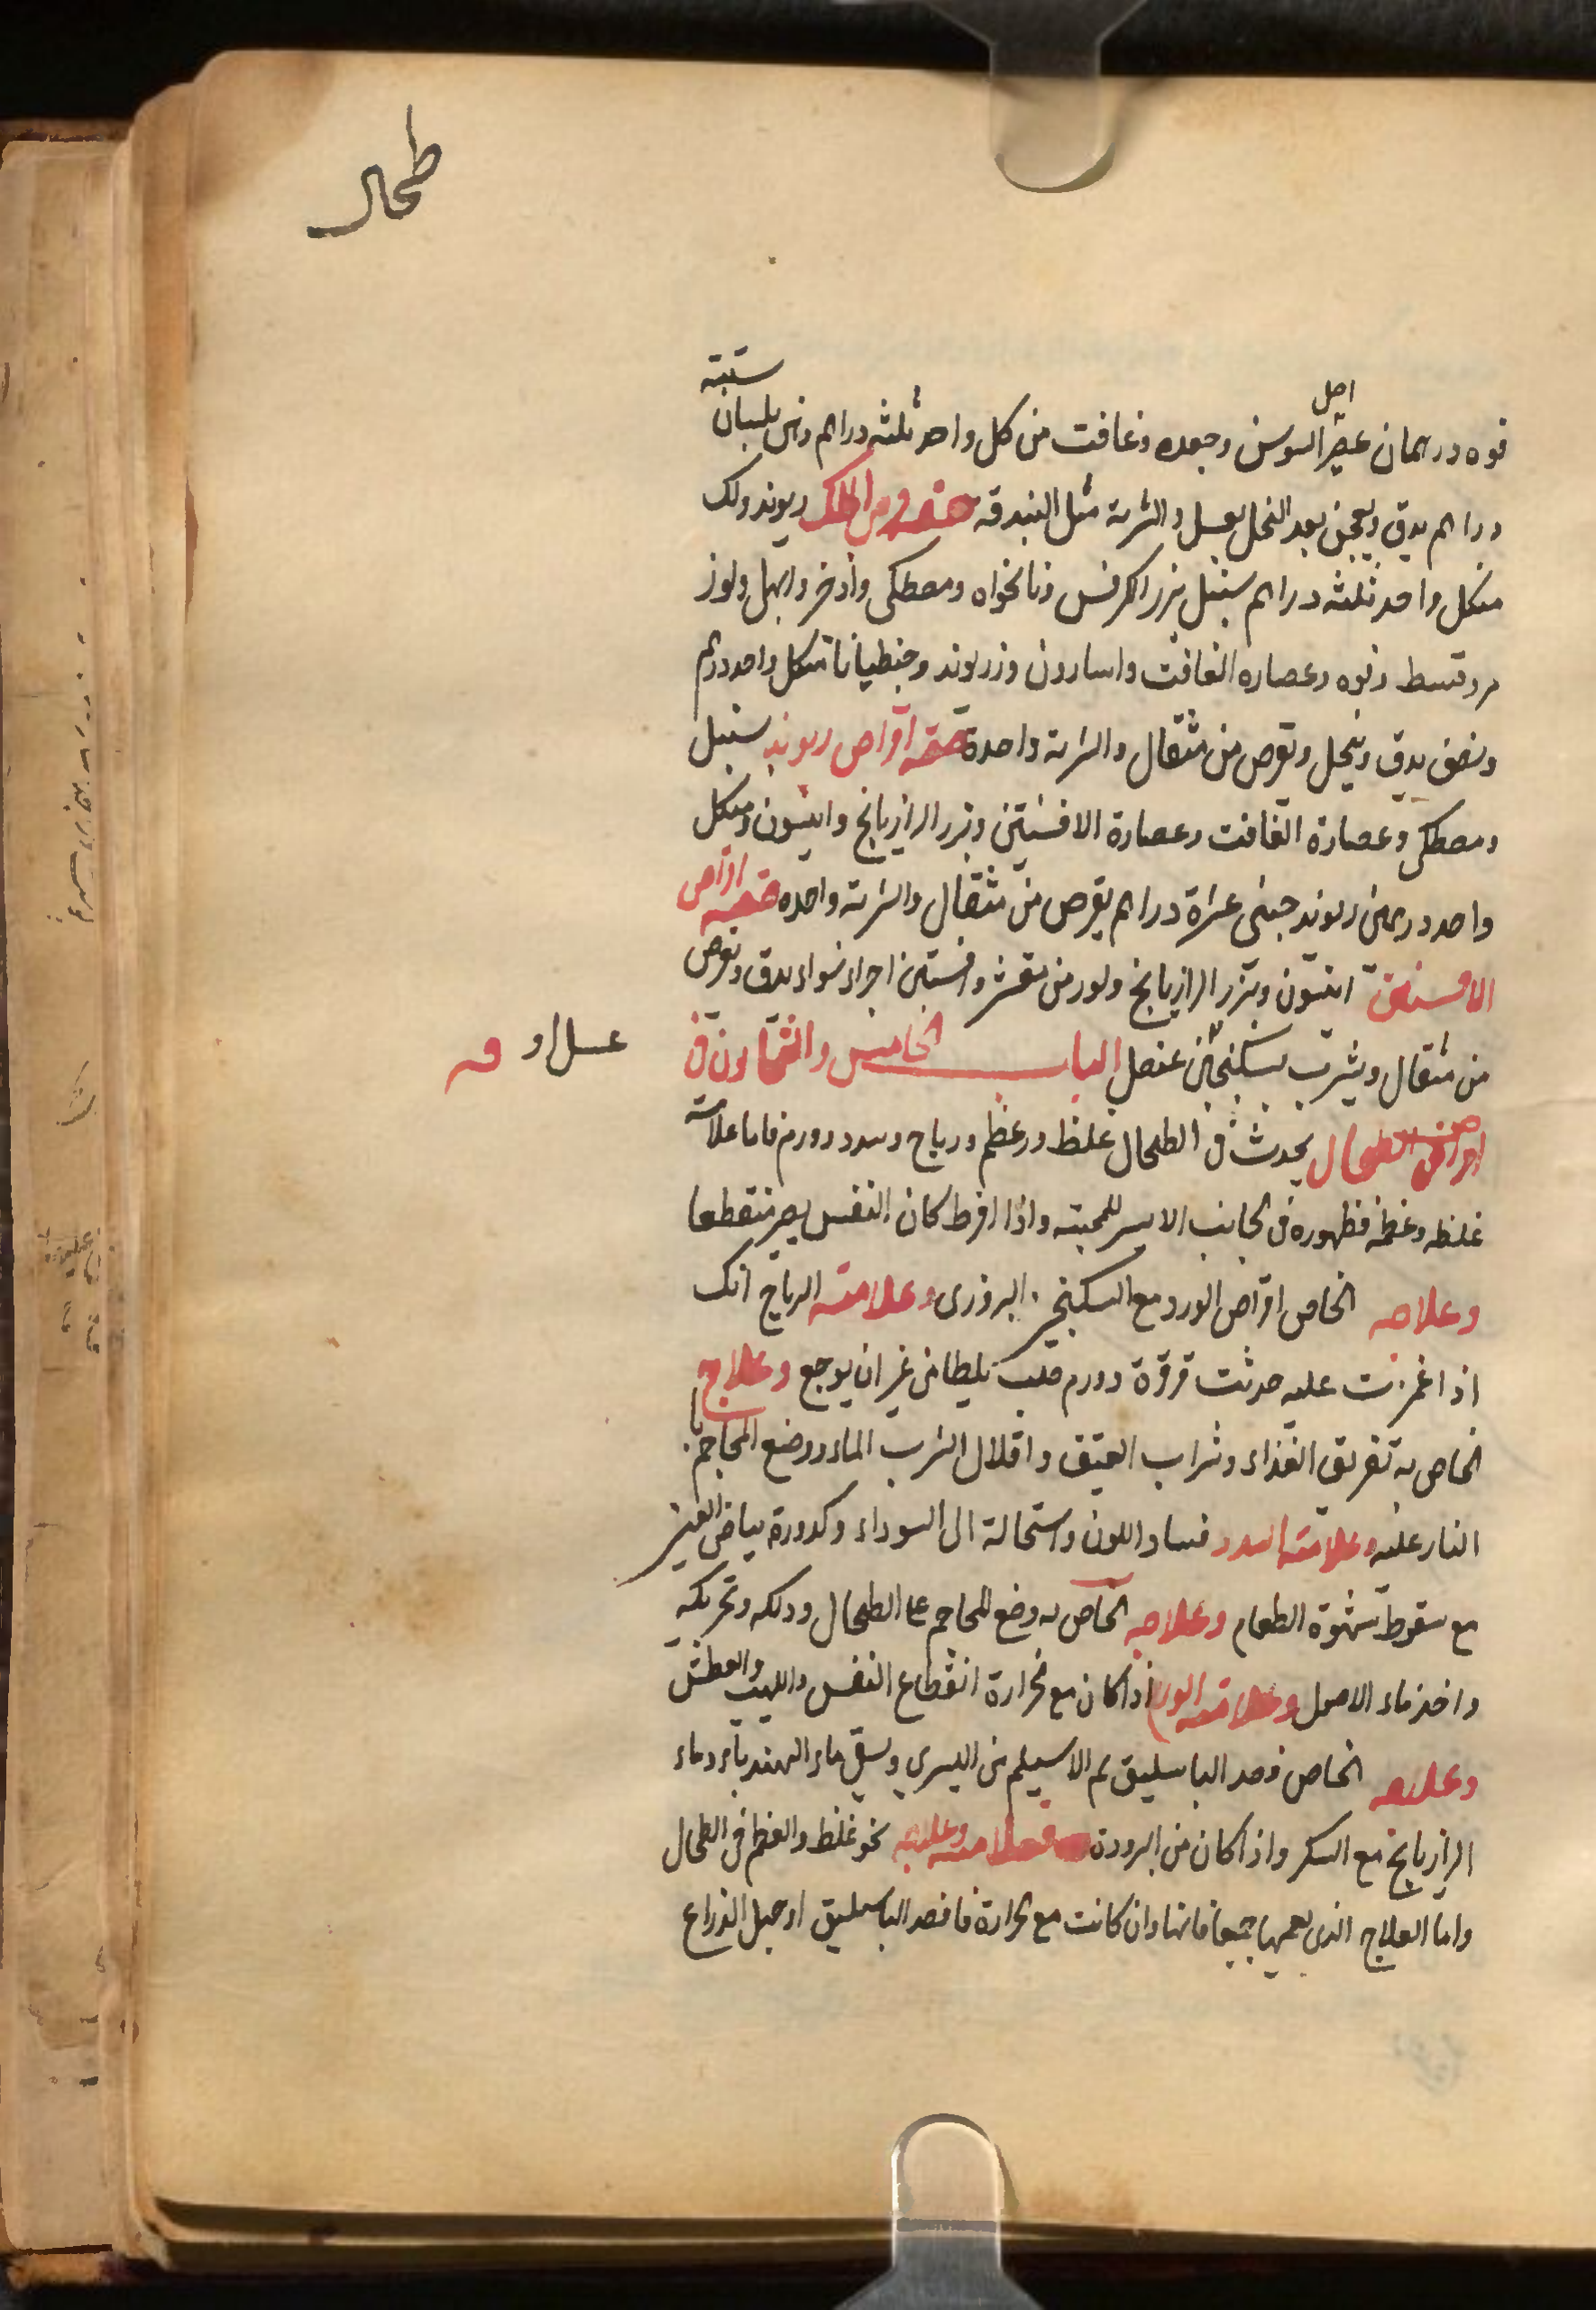 طحال
ستة
اصل
فوه درهمان عصير السوسن وجعده وغافت من كل واحد ثلثه دراهم وحب بلسان
دراهم يدق ويعجن بعد النخل بعسل والشربة مثل البندقه صفة قرص الملك ريوند ولك
من كل واحد ثلثه دراهم سنبل بزر الكرفس ونانخواه ومصطكى واذخر وابهل ولوز
مر وقسط وفوه وعصاره الغافت واسارون وزريوند وجنطيانا من كل واحد درهم
ونصف يدق وينخل ويقرص من مثقال والشربة واحدة صفة اقراص ريوند سنبل
ومصطكى وعصارة الغافت وعصارة الافسنتين وبزر الرازيانج وانيسون من كل
واحد درهمين ريوند جينى عشرة دراهم يقرص من مثقال والشربة واحده صفة اقراص
الافسنتين انيسون وبزر الرازيانج ولوز من مقشر وافسنتين اجزاء سواء يدق ويقرص
من مثقال ويشرب بسكنجبين عنصل الباب الخامس والثمانون فى
امراض الطحال يحدث فى الطحال غلظ وعظم ورياح وسدد وورم فاما علامة
غلظه وعظمه فظهوره فى الجانب الايسر للمجسه واذا افرط كان النفس يصير منقطعا
وعلاجه الخاص اقراص الورد مع السكنجبين البزورى وعلامته الرياح انك
اذا غمزت عليه حدثت قرقرة وورم من غير ان يوجع وعلاج
الخاص به تفريق الغذاء وشراب العتيق واقلال الشرب الماء ووضع المحاجم با
النار عليه وعلامته السدد فساد اللون واستحالة الى السوداء وكدورة بياض العين
مع سقوط شهوة الطعام وعلاجه الخاص به وضع المحاجم على الطحال ودلكه وتحريكه
واخذ ماء الاصول وعلامته الورم اذا كان مع حرارة انقطاع النفس واللهيب والعطش
وعلاجه الخاص فصد الباسليق ثم الاسيلم من اليسرى ويسقى ماء الهندباء وماء
الرازيانج مع السكر واذا كان من البرودة فعلامته وعلاجه نحو غلظ والعظم فى الطحال
واما العلاج الذى يعمها جميعا فانها وان كانت مع حرارة فافصد الباسليق او حبل الذراع